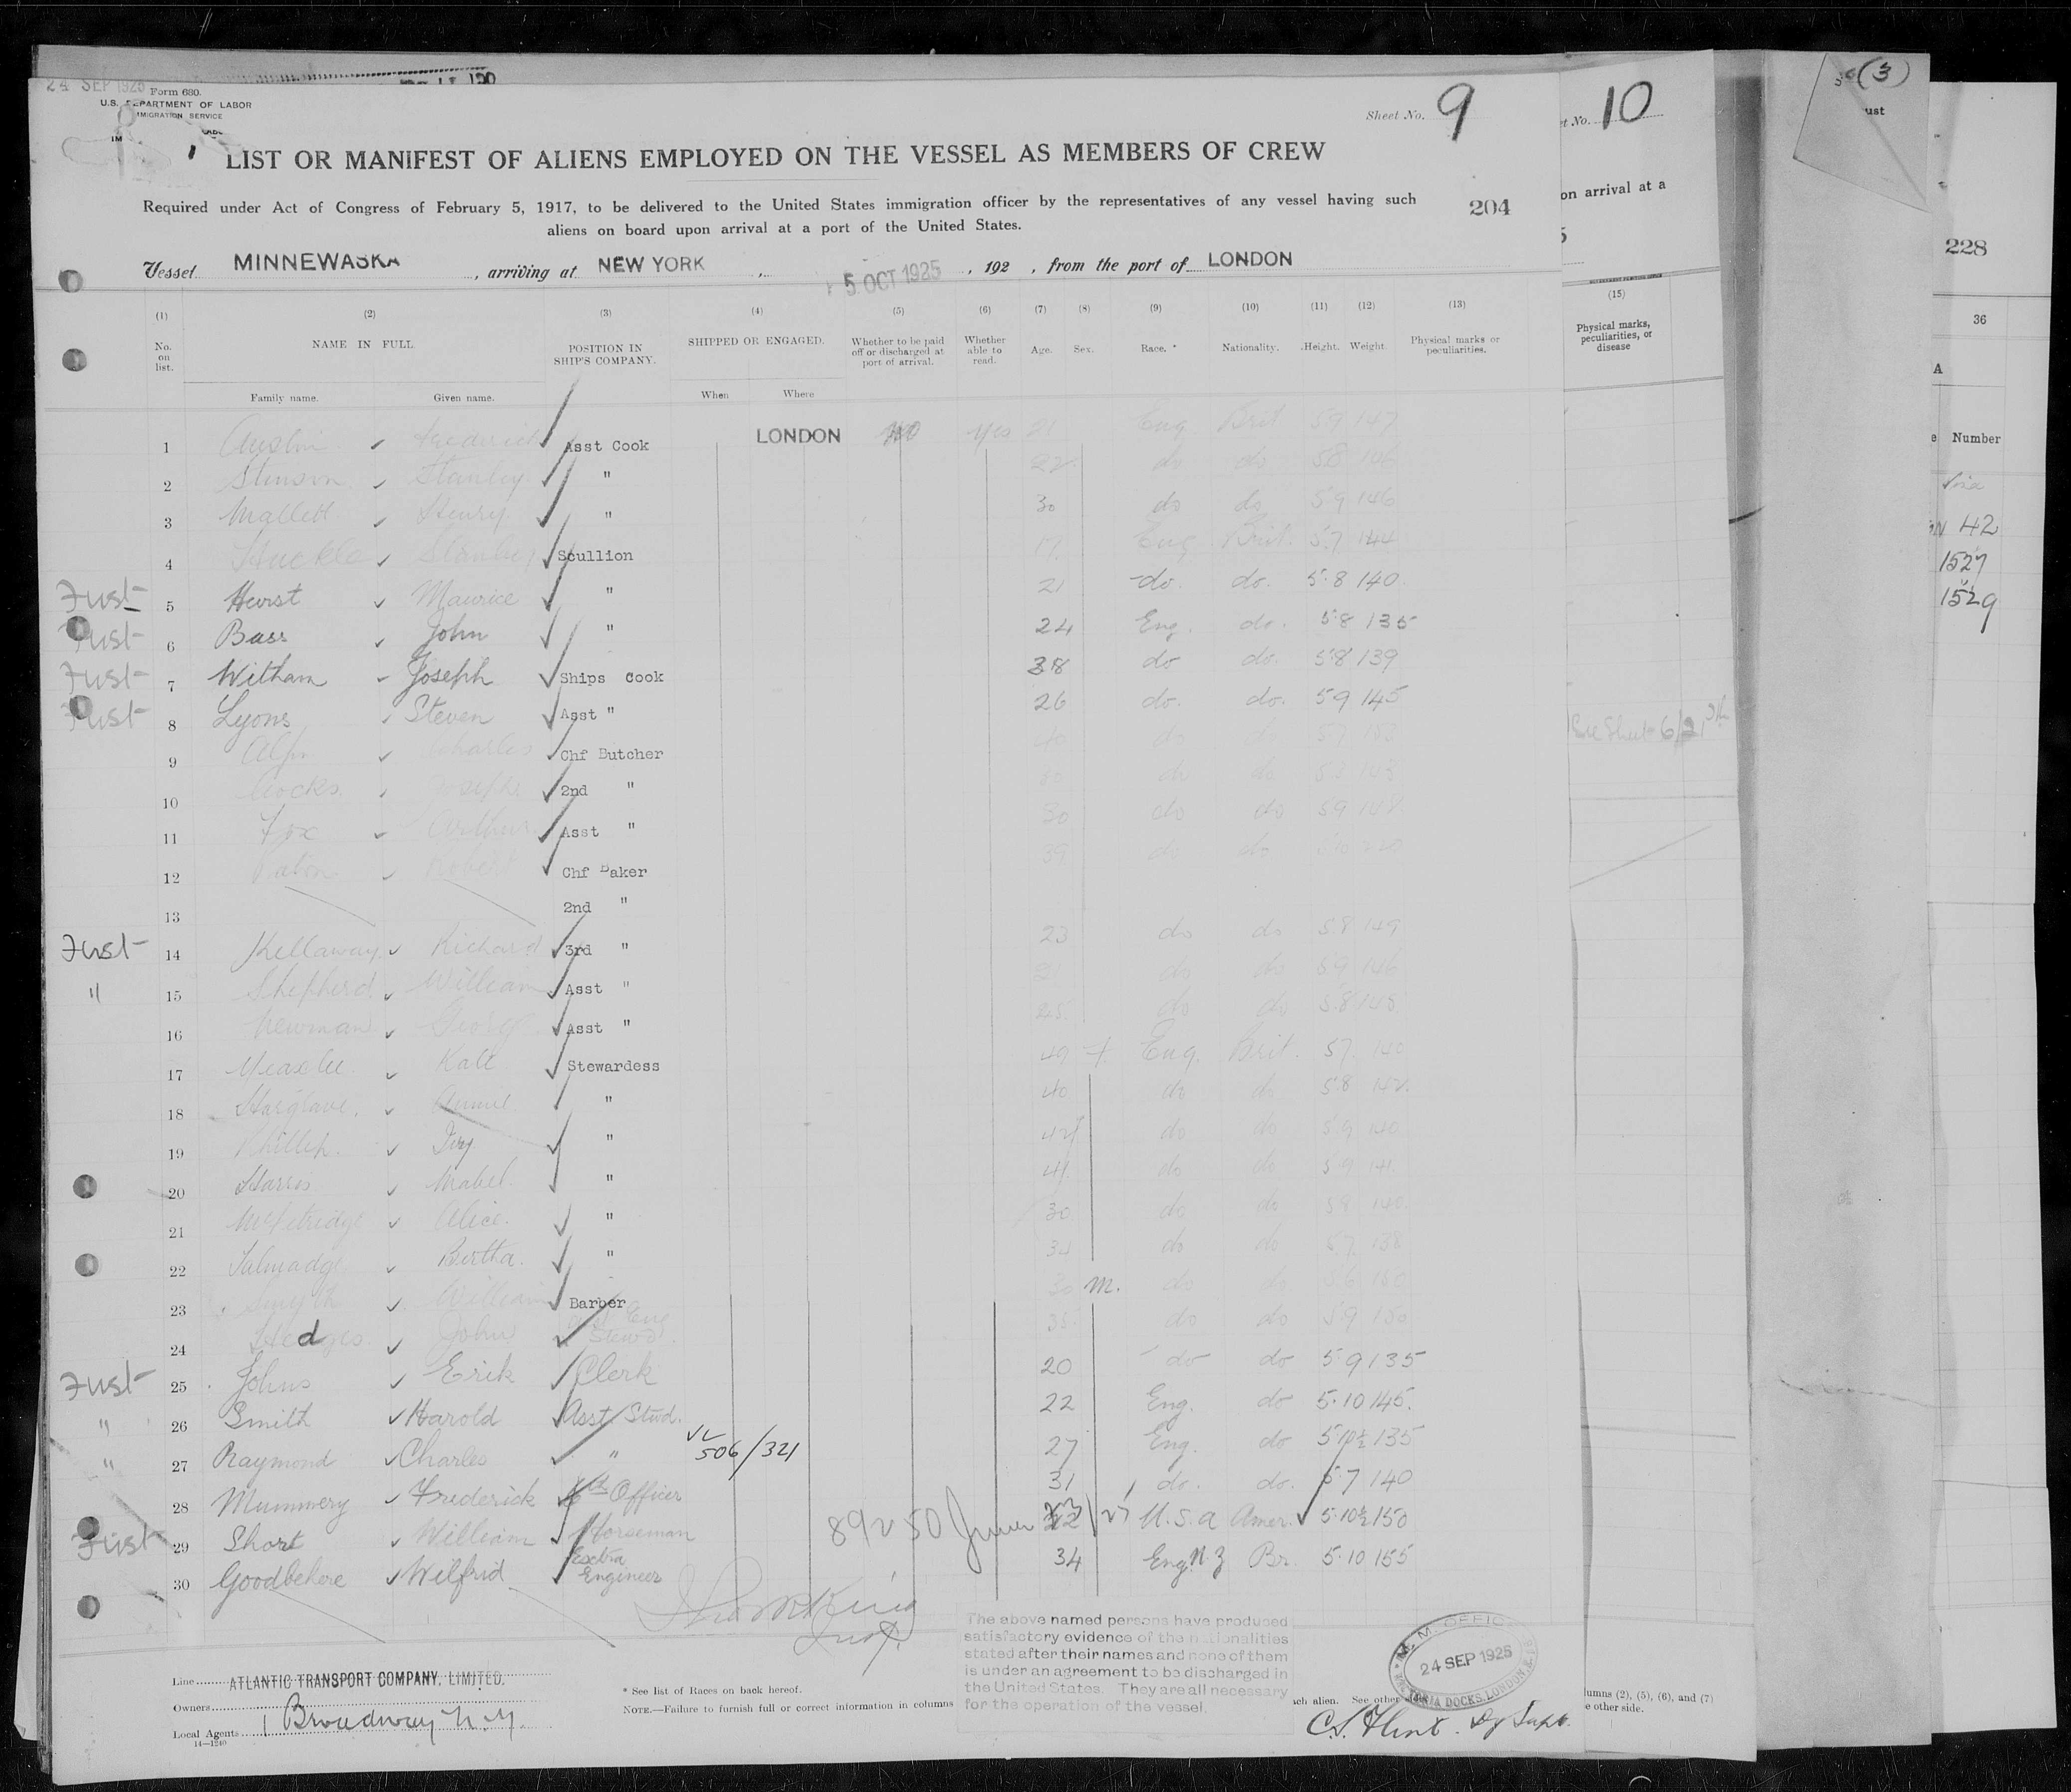 24 SEP 1925 Form 680.
U.S. DEPARTMENT OF LABOR
IMMIGRATION SERVICE
Sheet No. 9
LIST OR MANIFEST OF ALIENS EMPLOYED ON THE VESSEL AS MEMBERS OF CREW
Required under Act of Congress of February 5, 1917, to be delivered to the United States immigration officer by the representatives of any vessel having such
aliens on board upon arrival at a port of the United States.
204
Vessel MINNEWASKA, arriving at NEW YORK, 5 OCT 1925, 192 , from the port of LONDON
(1) (2) (3) (4) (5) (6) (7) (8) (9) (10) (11) (12) (13)
No. on list. NAME IN FULL POSITION IN SHIP'S COMPANY. SHIPPED OR ENGAGED. Whether to be paid off or discharged at port of arrival. Whether able to read. Age. Sex. Race. * Nationality. Height. Weight. Physical marks or peculiarities.
Family name. Given name. When Where
1 Austin Frederick Asst Cook LONDON No Yes 21 Eng Brit 5 9 147
2 Stinson Stanley " 22 do do 5 8 146
3 Mallett Henry " 30 do do 5 9 146
4 Huckle Stanley Scullion Eng Brit. 5.7 144
Just 5 Hurst Maurice " 21 do. do. 5.8 140.
Just 6 Bass John " 24 Eng. do. 5.8 135
Just 7 Witham Joseph Ships Cook 38 do do. 5.8 139
Just 8 Lyons Steven Asst " 26 do. do. 5 9 145
9 Charles Chf Butcher do do 5.7
10 Cocks Joseph 2nd " do do
11 Fox Arthur Asst " 30 do do 5 9 148
12 Robert Chf Baker 39 do do
13 2nd "
Just 14 Kellaway Richard 3rd " 23 do do 5.8 149
" 15 Shepherd William Asst " 21 do do 5.9 146
16 Newman George Asst " 25 do do 5.8 145
17 Kate Stewardess 49 f Eng. Brit. 5 7 140
18 Hargrave. Annie " 40 do do 5.8 142.
19 Phillip. Ivy " 42 do do 5.9 140
20 Harris Mabel. " 41 do do 5 9 141
21 McFetridge Alice. " 30 do do 5 8 140
22 Talmadge Bertha. " 34 do do 5 7 138
23 Smyth William Barber 30 m. do do 5 6 150
24 Hedges John Stewd. 35 do do 5 9 150
Just 25 Johns Erik Clerk 20 do do 5 9 135
" 26 Smith Harold Asst. Stwd. 22 Eng. do 5.10 145.
" 27 Raymond Charles " 506/321 27 Eng. do 5 10½ 135
28 Mummery Frederick Officer 31 do. do. 5 7 140
Just 29 Short William Horseman U.S.A Amer. 5.10½ 150
30 Goodbehere Wilfrid Extra Engineer 34 Eng N.Z Br. 5.10 155
The above named persons have produced
satisfactory evidence of the nationalities
stated after their names and none of them
is under an agreement to be discharged in
the United States. They are all necessary
for the operation of the vessel.
24 SEP 1925
Line ATLANTIC TRANSPORT COMPANY, LIMITED.
Owners
Local Agents 1 Broadway N.Y.
14—1240
* See list of Races on back hereof.
NOTE.—Failure to furnish full or correct information in columns
ach alien. See other
C.S. Flint. Dy Supt.
t No. 10
on arrival at a
(15)
Physical marks,
peculiarities, or
disease
See Sheet 6/21
lumns (2), (5), (6), and (7)
e other side.
(3)
ust
228
36
A
e Number
42
1527
1529